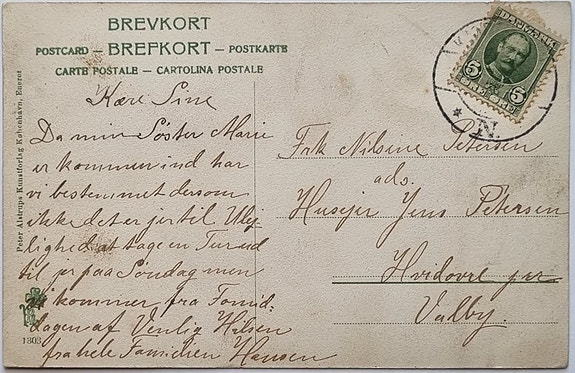 BREVKORT
POSTCARD – BREFKORT – POSTKARTE
CARTE POSTALE – CARTOLINA POSTALE
Peter Alstrups Kunstforlag København, Eneret
Kære Sine
Da min Søster Marie
er kommen ind har
vi bestemmet dersom
ikke det er jer til Ulej-
lighed at tage en Tur ud
til jer paa Søndag men
vi kommer fra Formid-
dagen af Venlig Hilsen
fra hele Familien Hansen
1803
DANMARK
5 5
N.
Frk Nilsine Petersen
ads.
Husejer Jens Petersen
Hvidovre per
Valby.